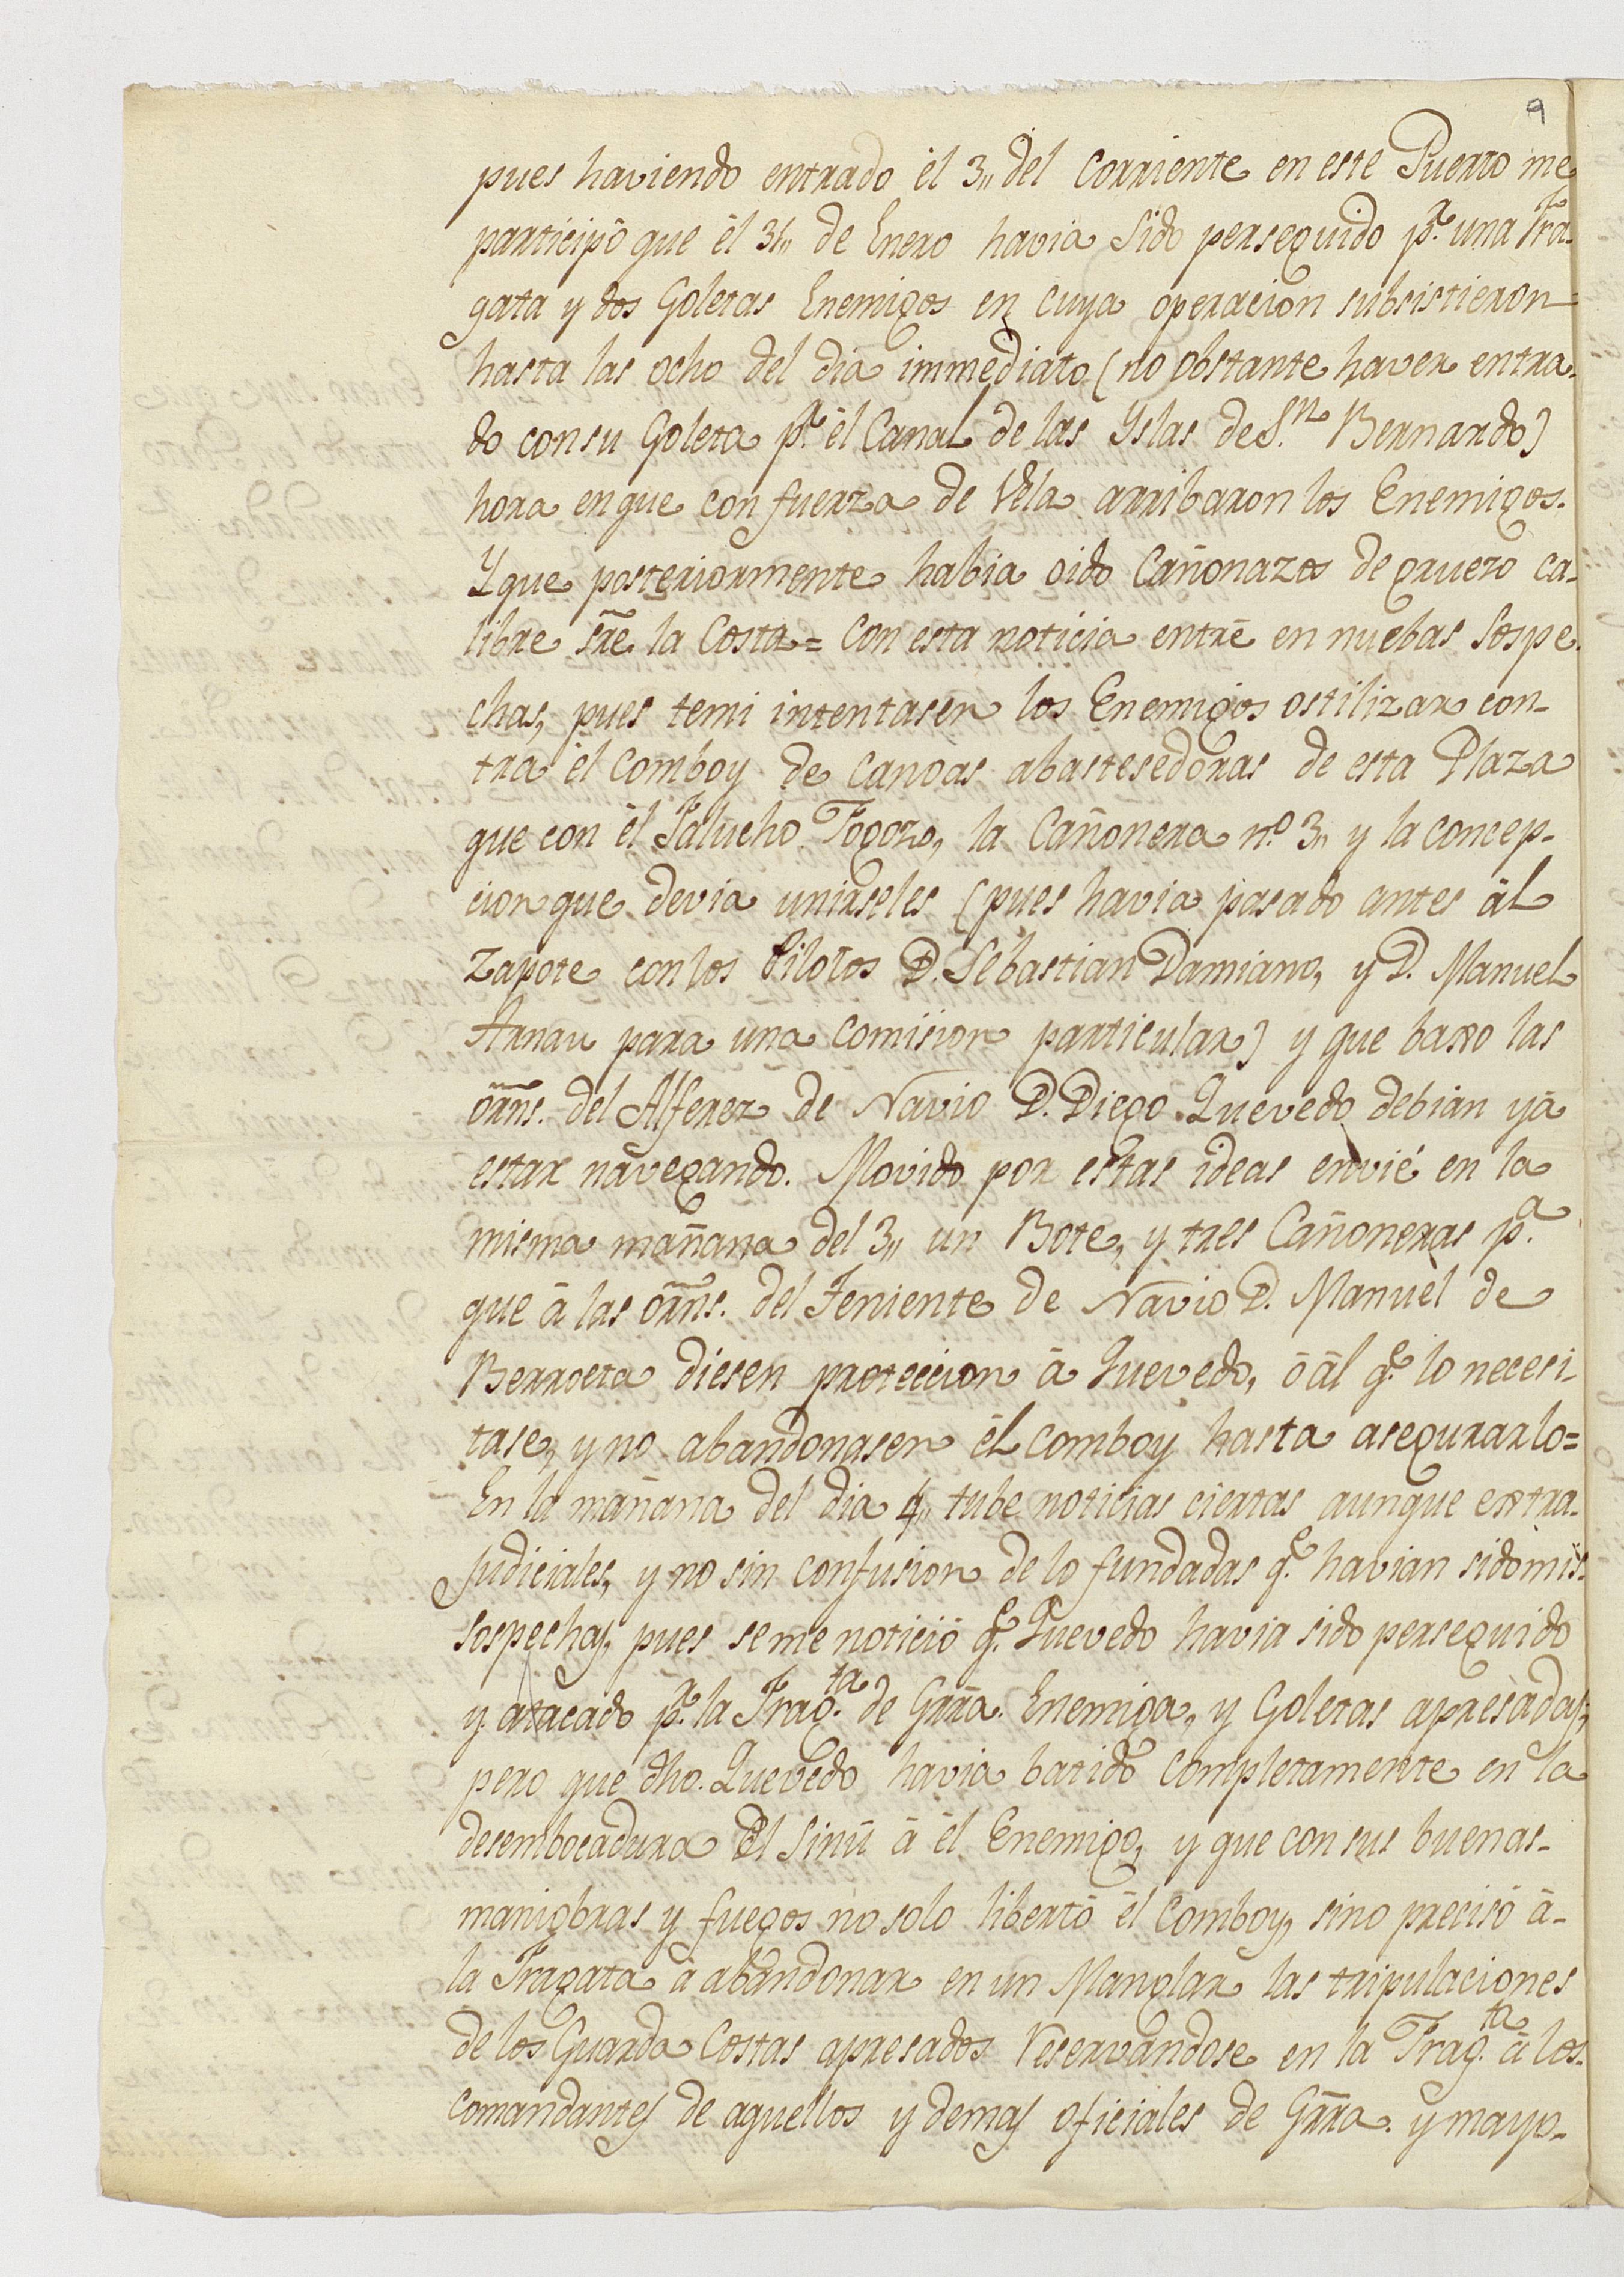 9
pues haviendo entrado él 3,, del Corriente en este Puerto me
participó que él 31,, de Enero havia Sido perseguido p.r una Fra-
gata y dos Goletas Enemigos en cuya operacion subsistieron
hasta las ocho del dia immediato (no obstante haver entra-
do con su Goleta p.r él Canal de las Yslas de S.n Bernardo)
hora en que con fuerza de Vela arribaron los Enemigos.
Y que posteriormente habia oido Cañonazos de grueso ca-
libre sre. la Costa = Con esta noticia entré en nuebas Sospe-
chas, pues temi intentasen los Enemigos ostilizar con-
tra él Comboy de Canoas abastesedoras de esta Plaza
que con él Falucho Togoro, la Cañonera n.o 3,, y la concep-
cion que devia unirseles (pues havia pasado antes ál
Zapote con los Pilotos D. Sebastian Damiano, y D. Manuel
Arnau para una Comision particular) y que baxo las
orns. del Alferez de Navio D. Diego Quevedo debian yá
estar navegando. Movido por estas ideas envié en la
misma mañana del 3,, un Bote, y tres Cañoneras p.a
que á las orns. del Teniente de Navio D. Manuel de
Berroeta diesen proteccion á Quevedo, ó ál q.e lo necesi-
tase, y no abandonasen él Comboy hasta asegurarlo =
En la mañana del dia 4,, tube noticias ciertas aunque extra-
Judiciales, y no sin confusion de lo fundadas q.e havian sido mis
sospechas, pues se me notició q.e Quevedo havia sido perseguido
y atacado p.r la Frag.ta de Grra. Enemiga, y Goletas apresadas;
pero que dho. Quevedo havia batido completamente en la
desembocadura del Sinú á él Enemigo, y que con sus buenas
maniobras y fuegos no solo libertó él Comboy, sino precisó á
la Fragata á abandonar en un Manglar las tripulaciones
de los Guarda Costas apresados Reservandose en la Frag.ta á los
comandantes de aquellos y demas oficiales de Grra. y mayo-